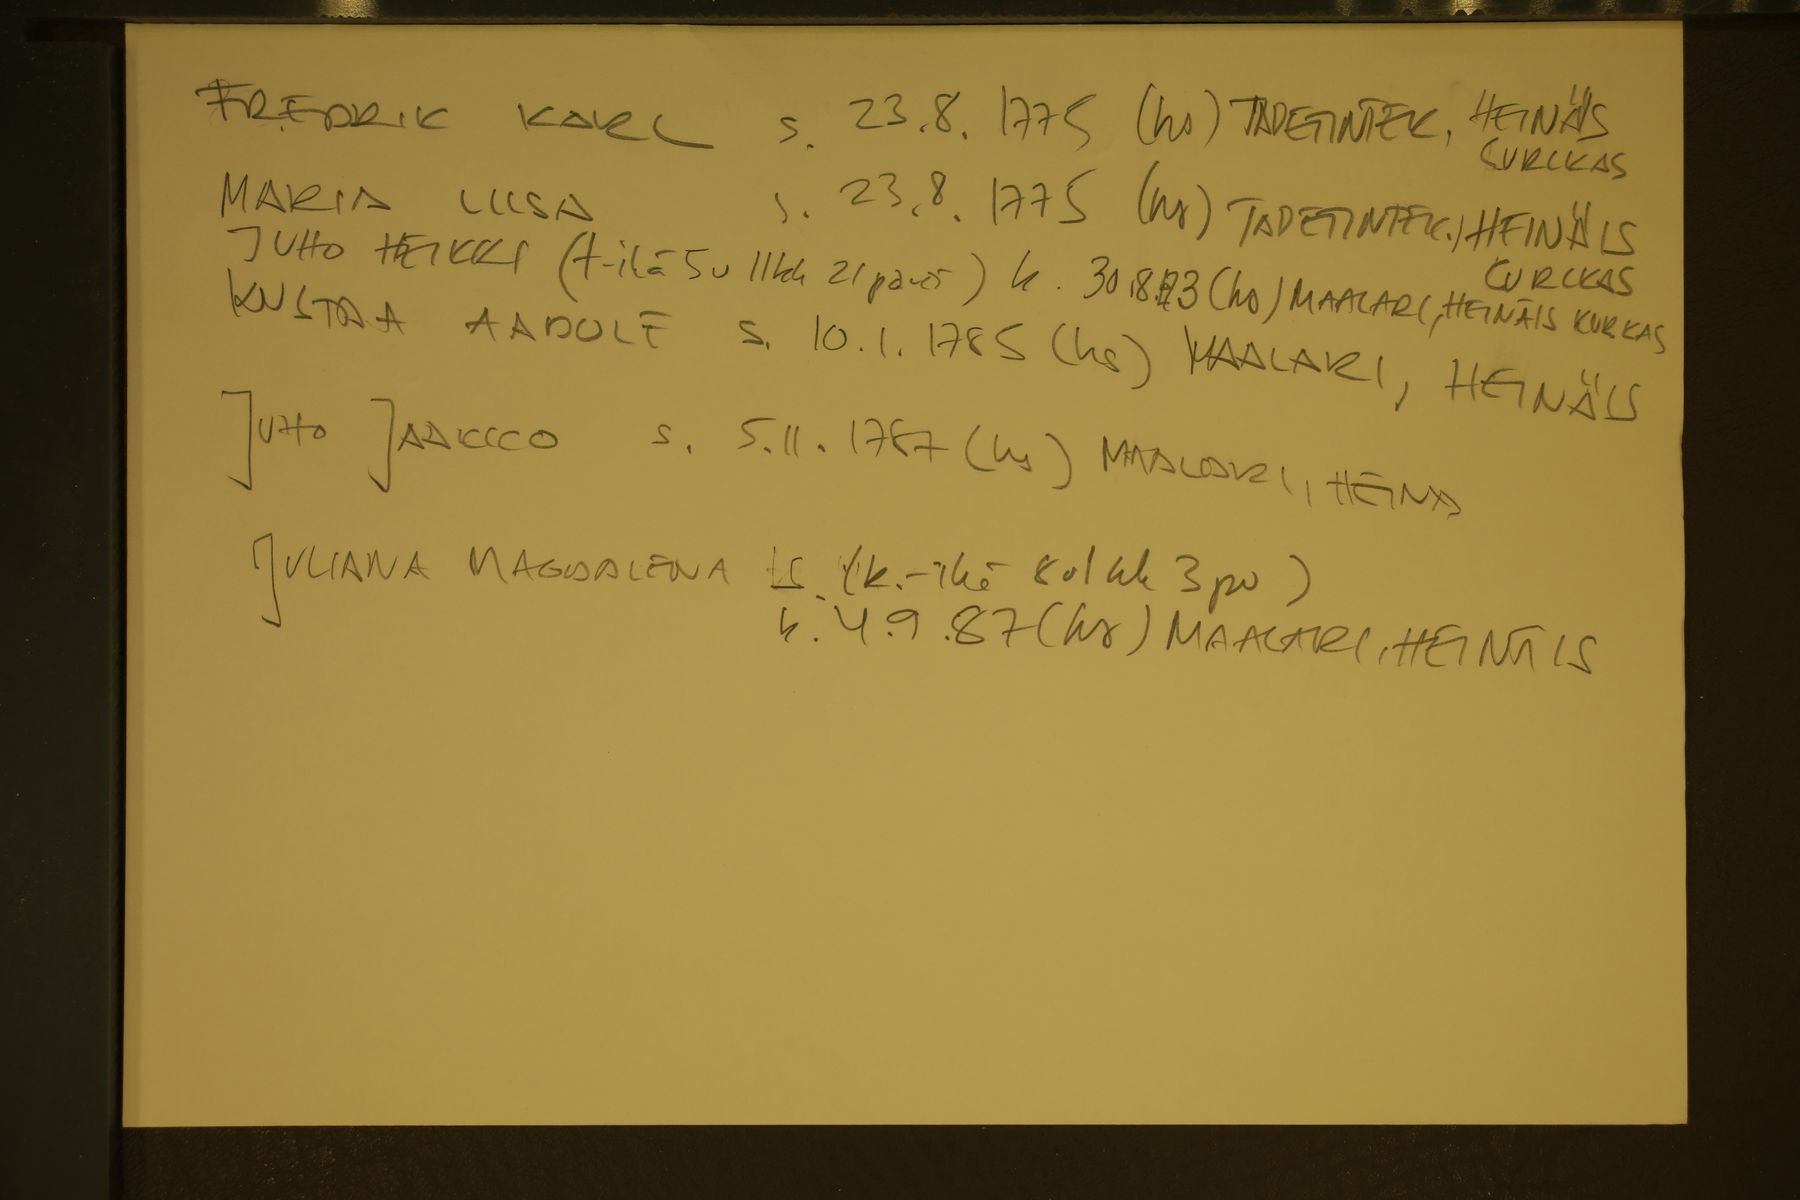 FREDRIK KARL s. 23.8. 1775 (hs) TADETINTEK, HEINÄIS
KURKKAS
MARIA LIISA s. 23.8. 1775 (hs) TADETINTEK., HEINÄIS
KURKKAS
JUHO HEIKKI (t-ikä 5v 11kk 21 päivä) k. 30.8. (hs) MAALARI, HEINÄIS KURKAS
KUSTAA AADOLF s. 10.1. 1785 (hs) MAALARI, HEINÄIS
JUHO JAAKKO s. 5.11. 1787 (hs) MAALARI, HEINÄ
JULIANA MAGDALENA (k.-ikä 8v1kk 3pv)
k. 4.9.87 (hs) MAALARI, HEINÄIS